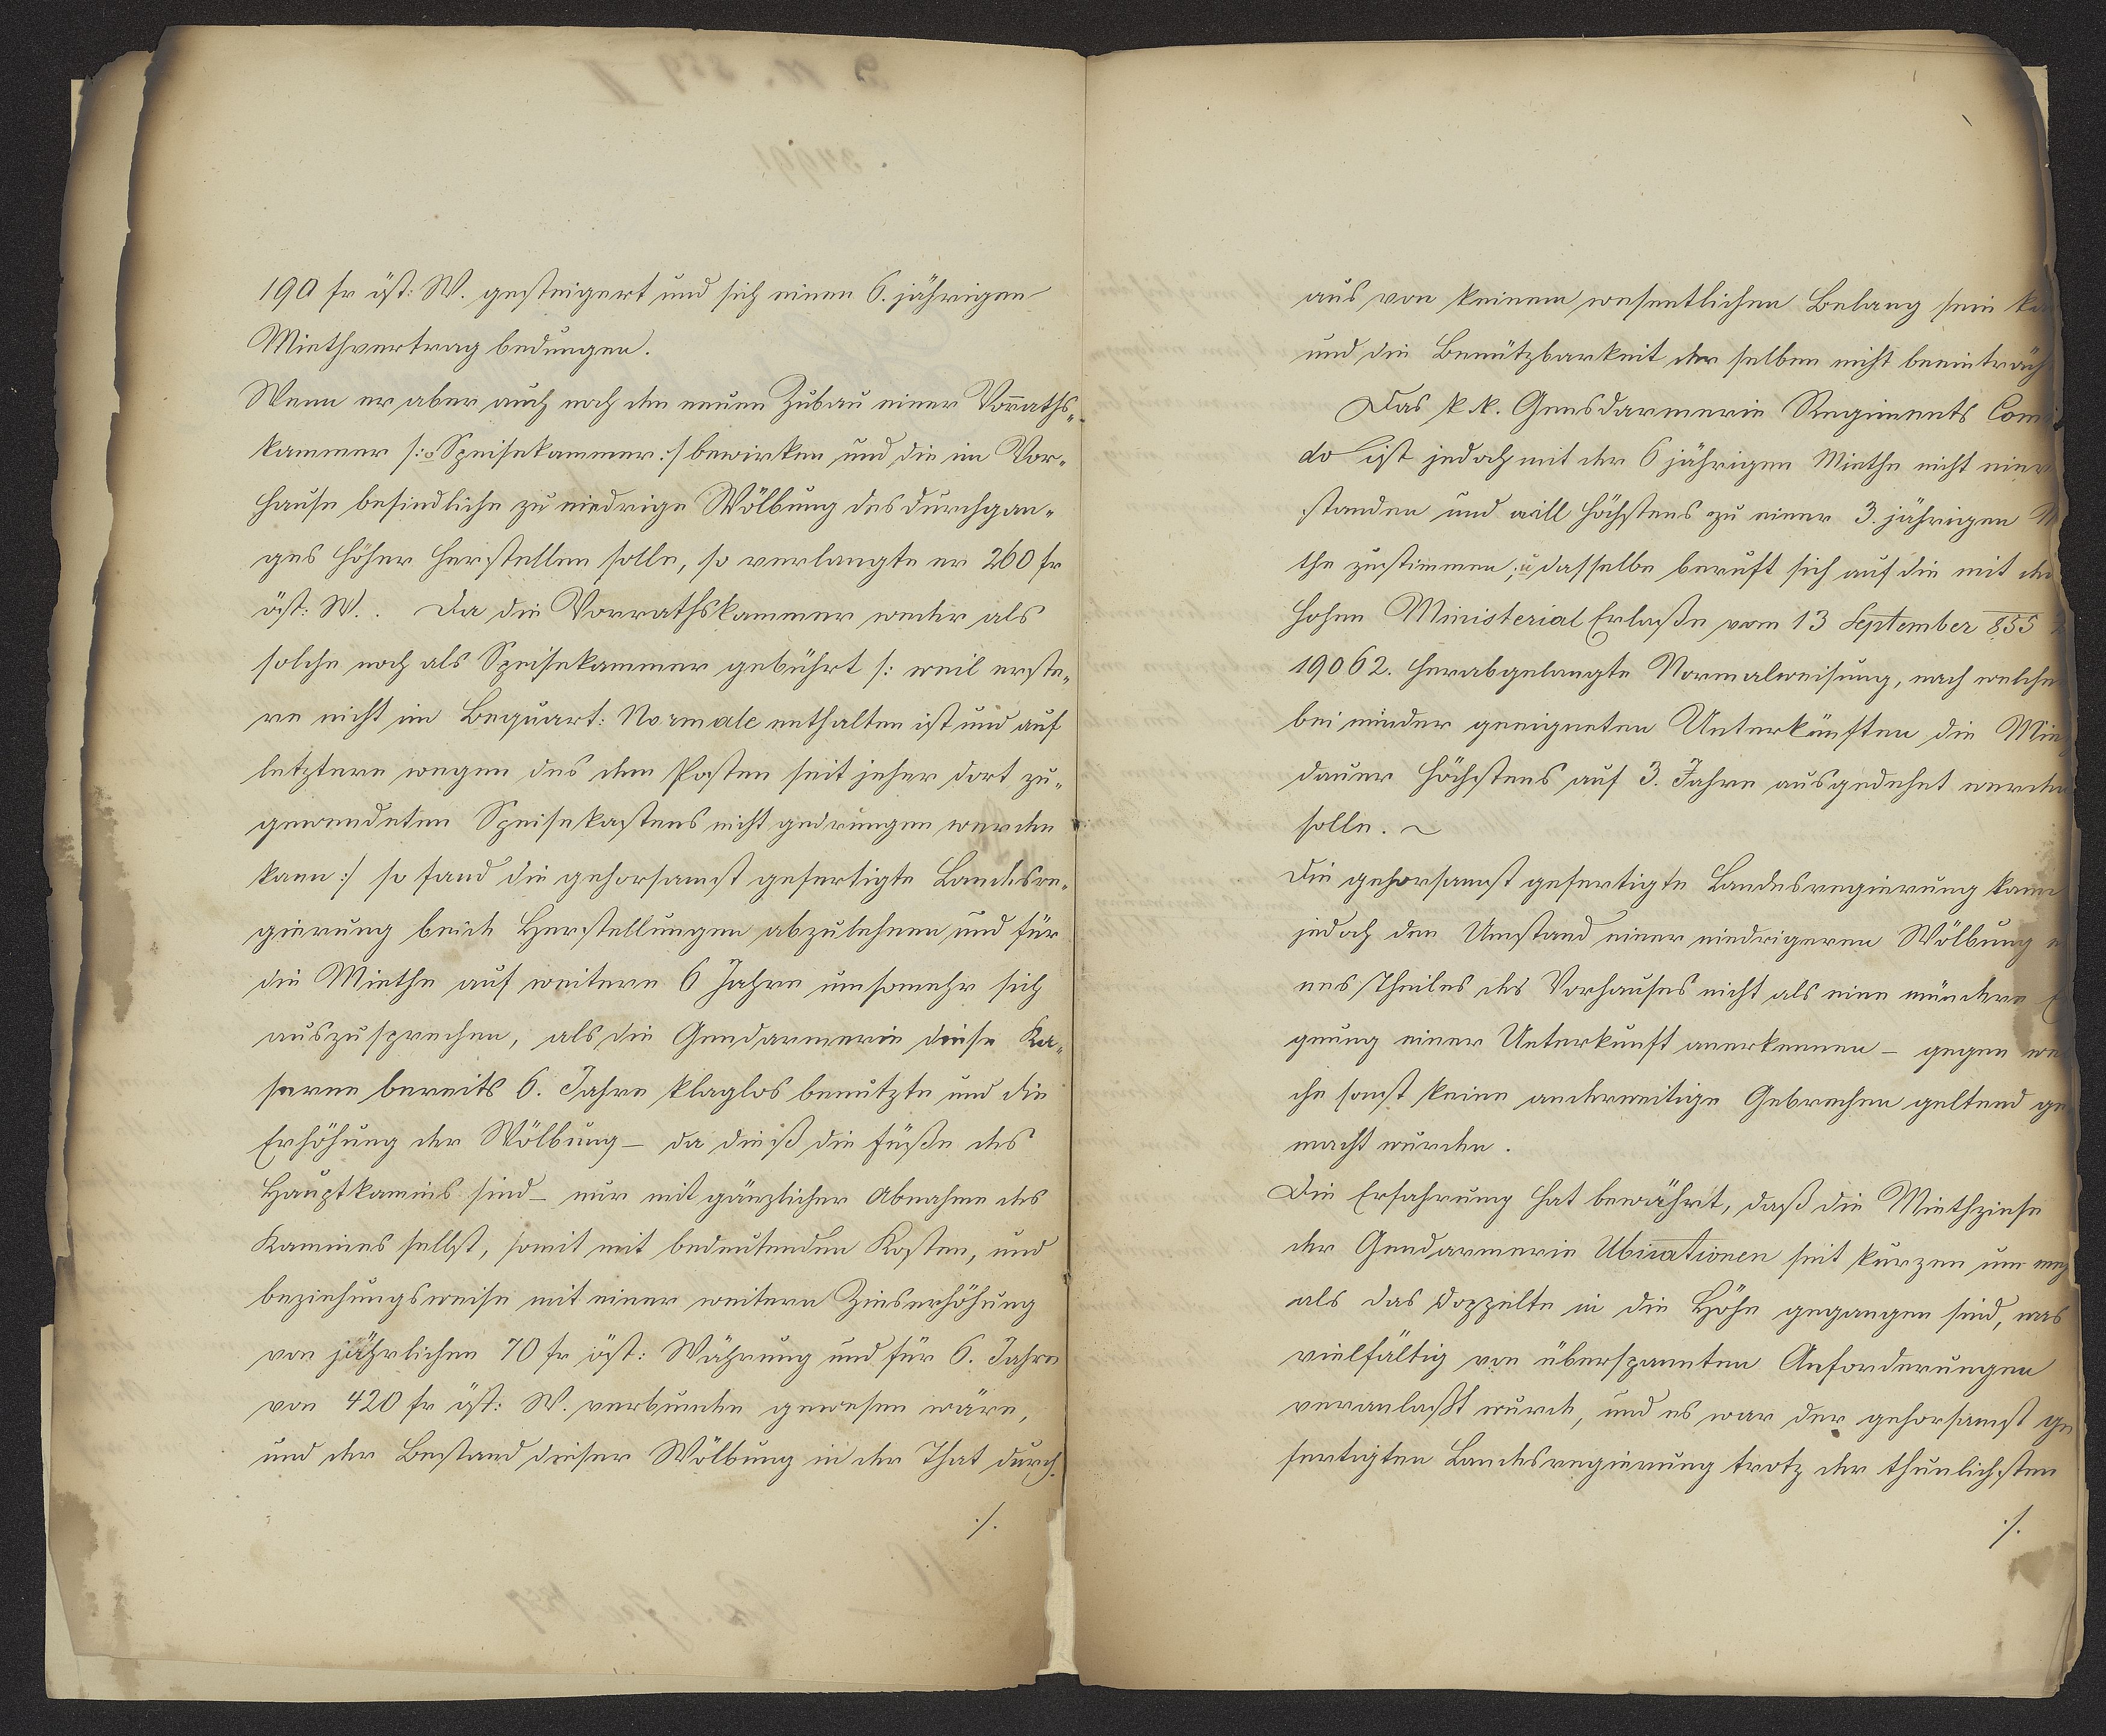 190 fr öst: W. gesteigert und sich einen 6. jährigen
Miethvertrag bedungen.
Wenn er aber auch noch den neuen Zubau einer Vorraths-
kammer /: o Speisekammer :/ bewirken und die im Vor-
hause befindliche zu niedrige Wölbung des Durchgan-
ges höher herstellen solle, so verlangte er 260 fr
öst: W.. Da die Vorrathskammer weder als
solche noch als Speisekammer gebührt /: weil erste-
re nicht im Bequart: Normale enthalten ist und auf
letztere wegen des dem Posten seit jeher dort zu-
gewendeten Speisekastens nicht gedrungen werden
kann :/ so fand die gehorsamst gefertigte Landesre-
gierung beide Herstellungen abzulehnen und für
die Miethe auf weitere 6 Jahre umsomehr sich
auszusprechen, als die Gendarmerie diese Ka-
serne bereits 6. Jahre klaglos benutzte und die
Erhöhung der Wölbung – da dieß die Füße des
Hauptkamins sind – nur mit gänzlicher Abnahme des
Kamines selbst, somit mit bedeutenden Kosten, und
beziehungsweise mit einer weitern Zinserhöhung
von jährlichen 70 fr öst: Währung und für 6. Jahre
von 420 fr öst: W. verbunden gewesen wäre,
und der Bestand dieser Wölbung in der That durch-
./.
aus von keinem wesentlichen Belang sein ka
und die Benützbarkeit der selben nicht beeinträch
Das k k. Gensdarmerie Regiments Com
do ist jedoch mit der 6 jährigen Miethe nicht einver
standen und will höchstens zu einer 3. jährigen M
the zustimmen; u dasselbe beruft sich auf die mit de
hohen Ministerial Erlaße vom 13 September 855
19062. herabgelangte Normalweisung, nach welche
bei minder geeigneten Unterkünften die Mie
dauer höchstens auf 3. Jahre ausgedehnt werde
solle. ~
Die gehorsamst gefertigte Landesregierung kann
jedoch den Umstand einer niedrigeren Wölbung e
nes Theiles des Vorhauses nicht als eine mindere E
gnung einer Unterkunft anerkennen – gegen we
che sonst keine anderweitige Gebrechen geltend ge
macht wurden.
Die Erfahrung hat bewährt, daß die Miethzinse
der Gendarmerie Ubicationen seit kurzen um meh
als das Doppelte in die Höhe gegangen sind, was
vielfältig von überspannten Anforderungen
veranlaßt wurde, und es war der gehorsamst ge
fertigten Landesregierung trotz der thunlichsten
./.